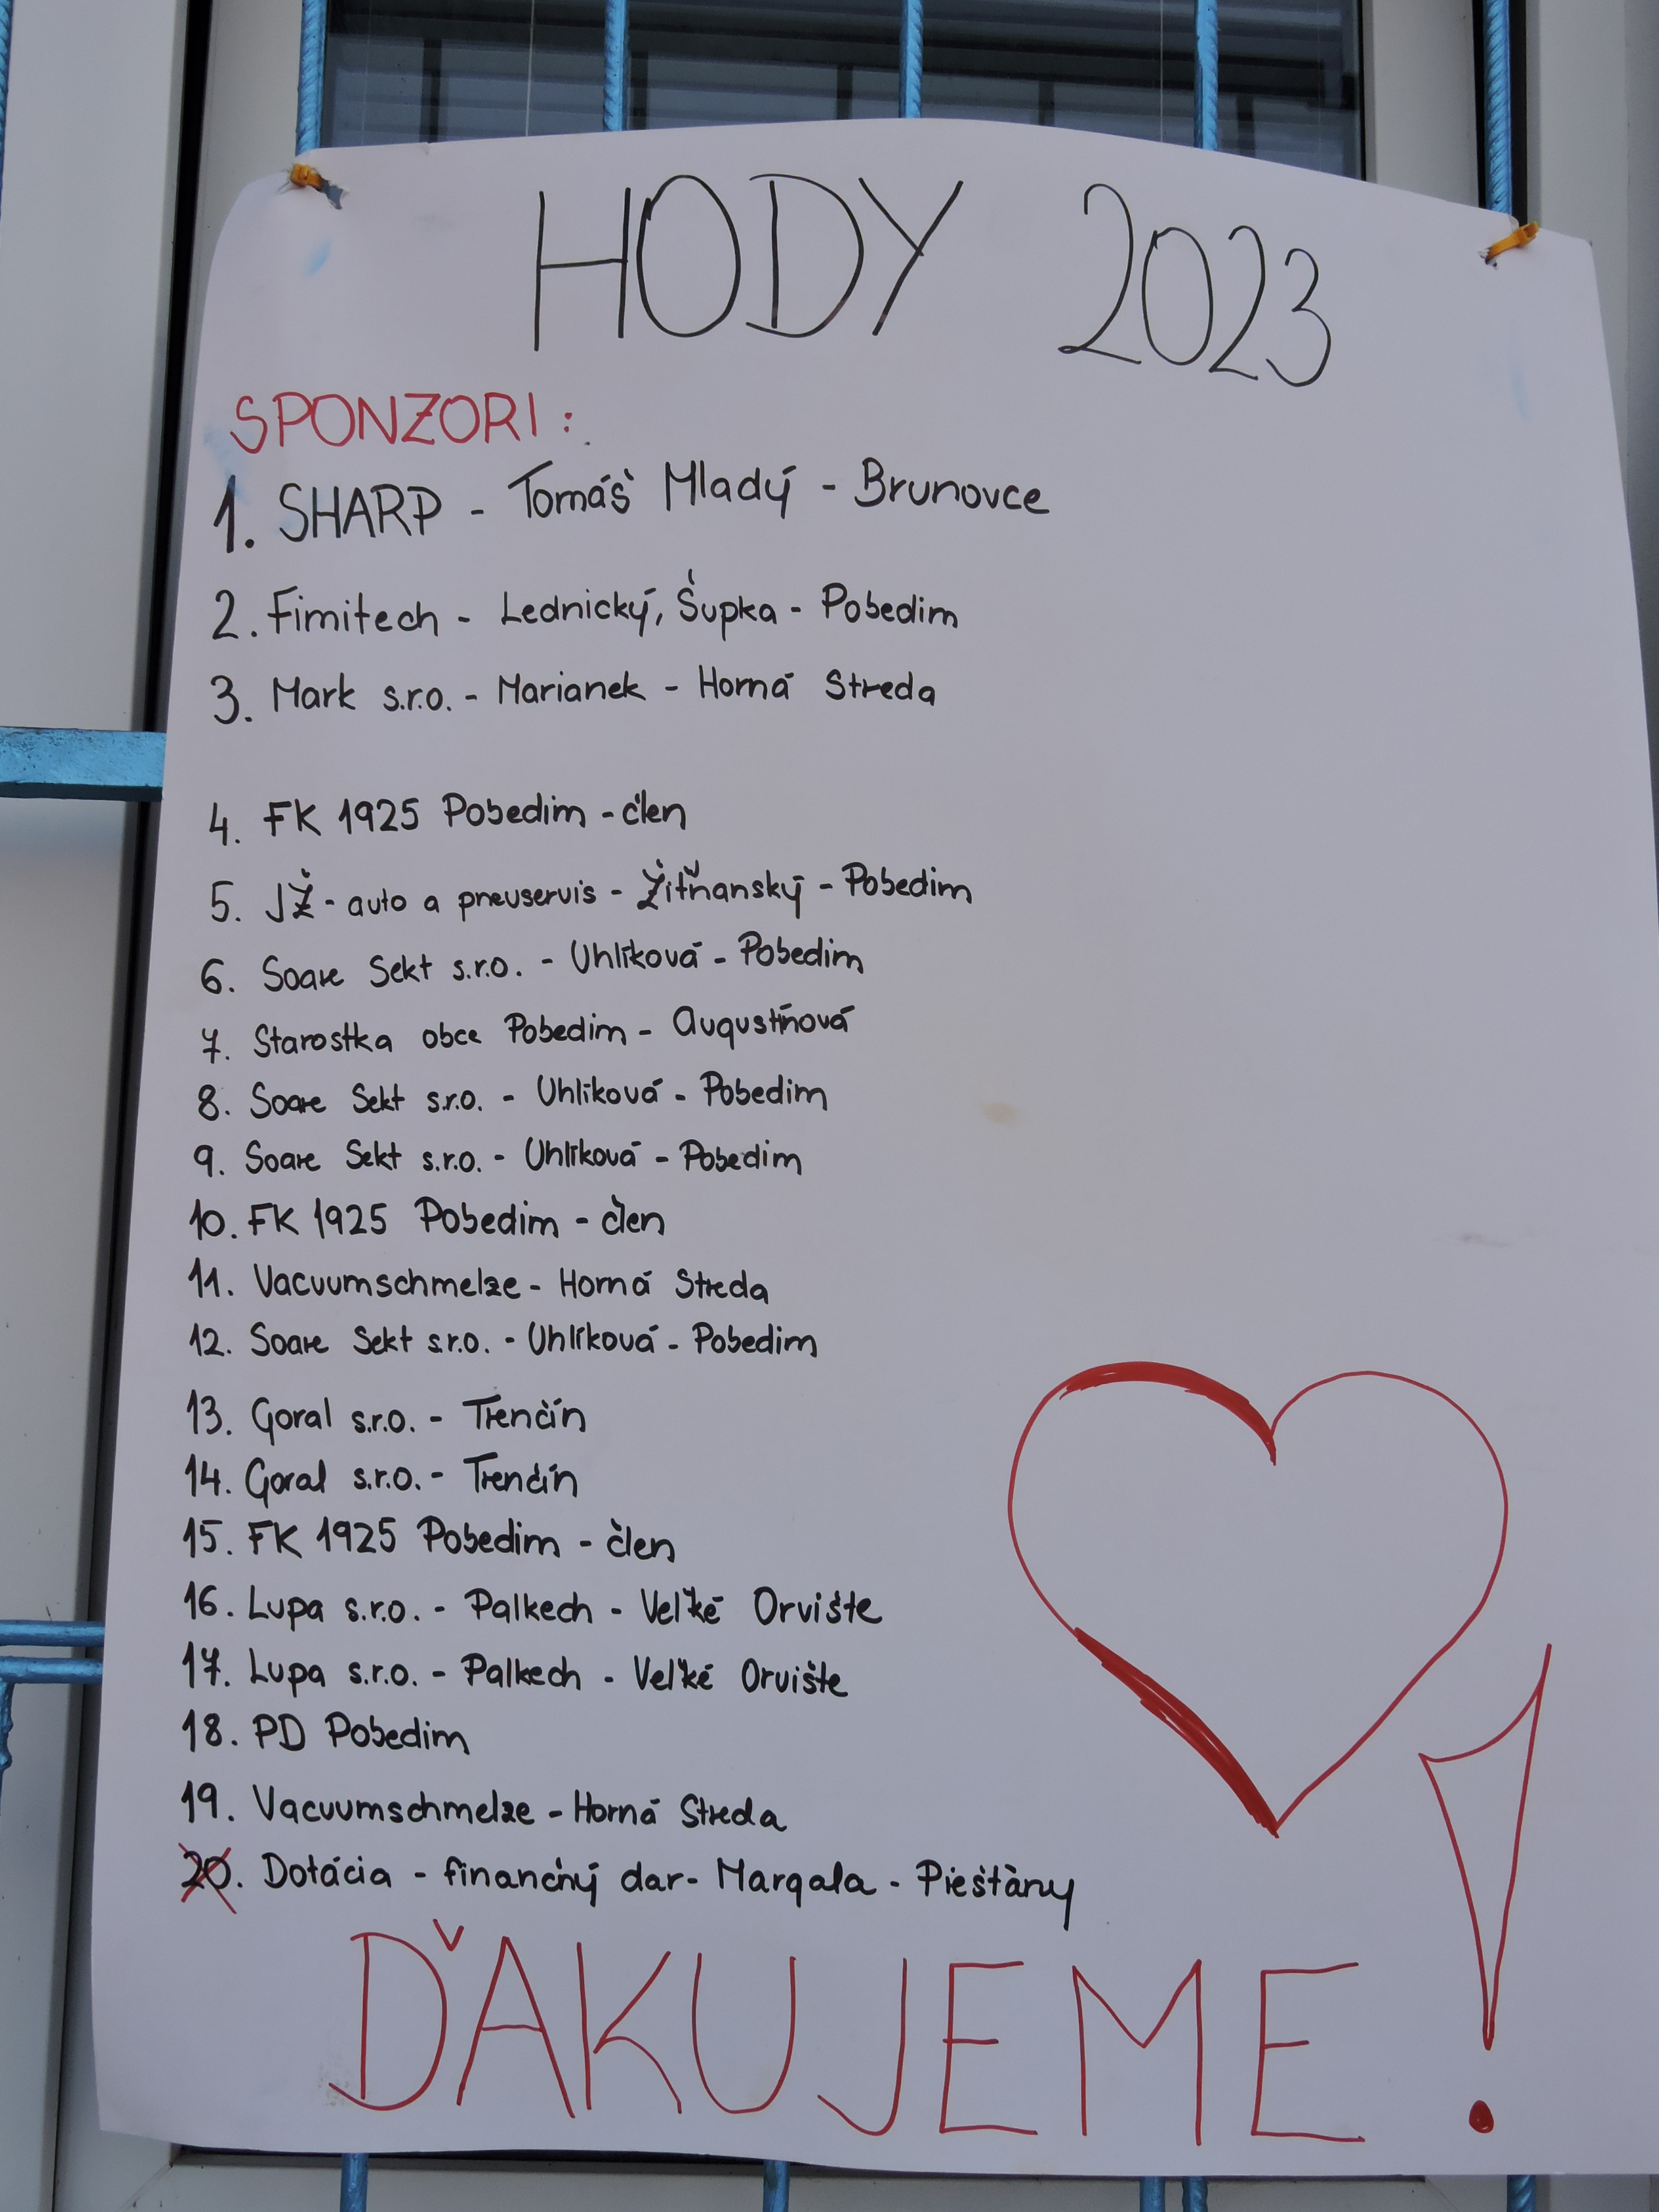 HODY 2023
SPONZORI:
1. SHARP - Tomáš Mladý - Brunovce
2. Fimitech - Lednický, Šupka - Pobedim
3. Mark s.r.o. - Marianek - Horná Streda
4. FK 1925 Pobedim - člen
5. JŽ - auto a pneuservis - Žitňanský - Pobedim
6. Soare Sekt s.r.o. - Uhlíková - Pobedim
7. Starostka obce Pobedim - Augustínová
8. Soare Sekt s.r.o. - Uhlíková - Pobedim
9. Soare Sekt s.r.o. - Uhlíková - Pobedim
10. FK 1925 Pobedim - člen
11. Vacuumschmelze - Horná Streda
12. Soare Sekt s.r.o. - Uhlíková - Pobedim
13. Goral s.r.o. - Trenčín
14. Goral s.r.o. - Trenčín
15. FK 1925 Pobedim - člen
16. Lupa s.r.o. - Palkech - Veľké Orvište
17. Lupa s.r.o. - Palkech - Veľké Orvište
18. PD Pobedim
19. Vacuumschmelze - Horná Streda
20. Dotácia - finančný dar - Margala - Piešťany
ĎAKUJEME!